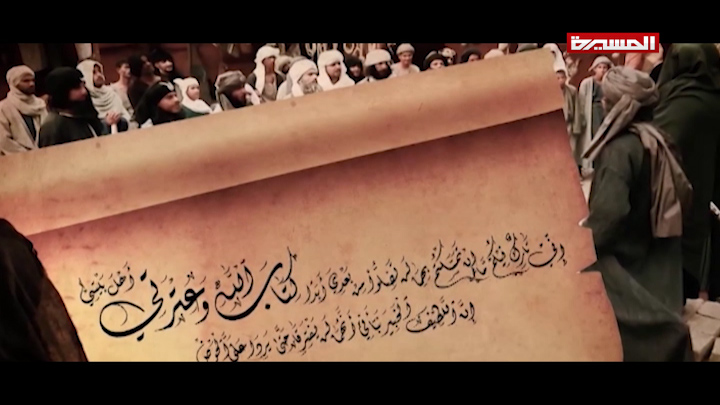 المسيرة
إني تارك فيكم ما إن تمسكتم بهما لن تضلوا من بعدي أبدا كتاب الله وعترتي أهل بيتي
إن اللطيف الخبير نبأني أنهما لن يفترقا حتى يردا علي الحوض